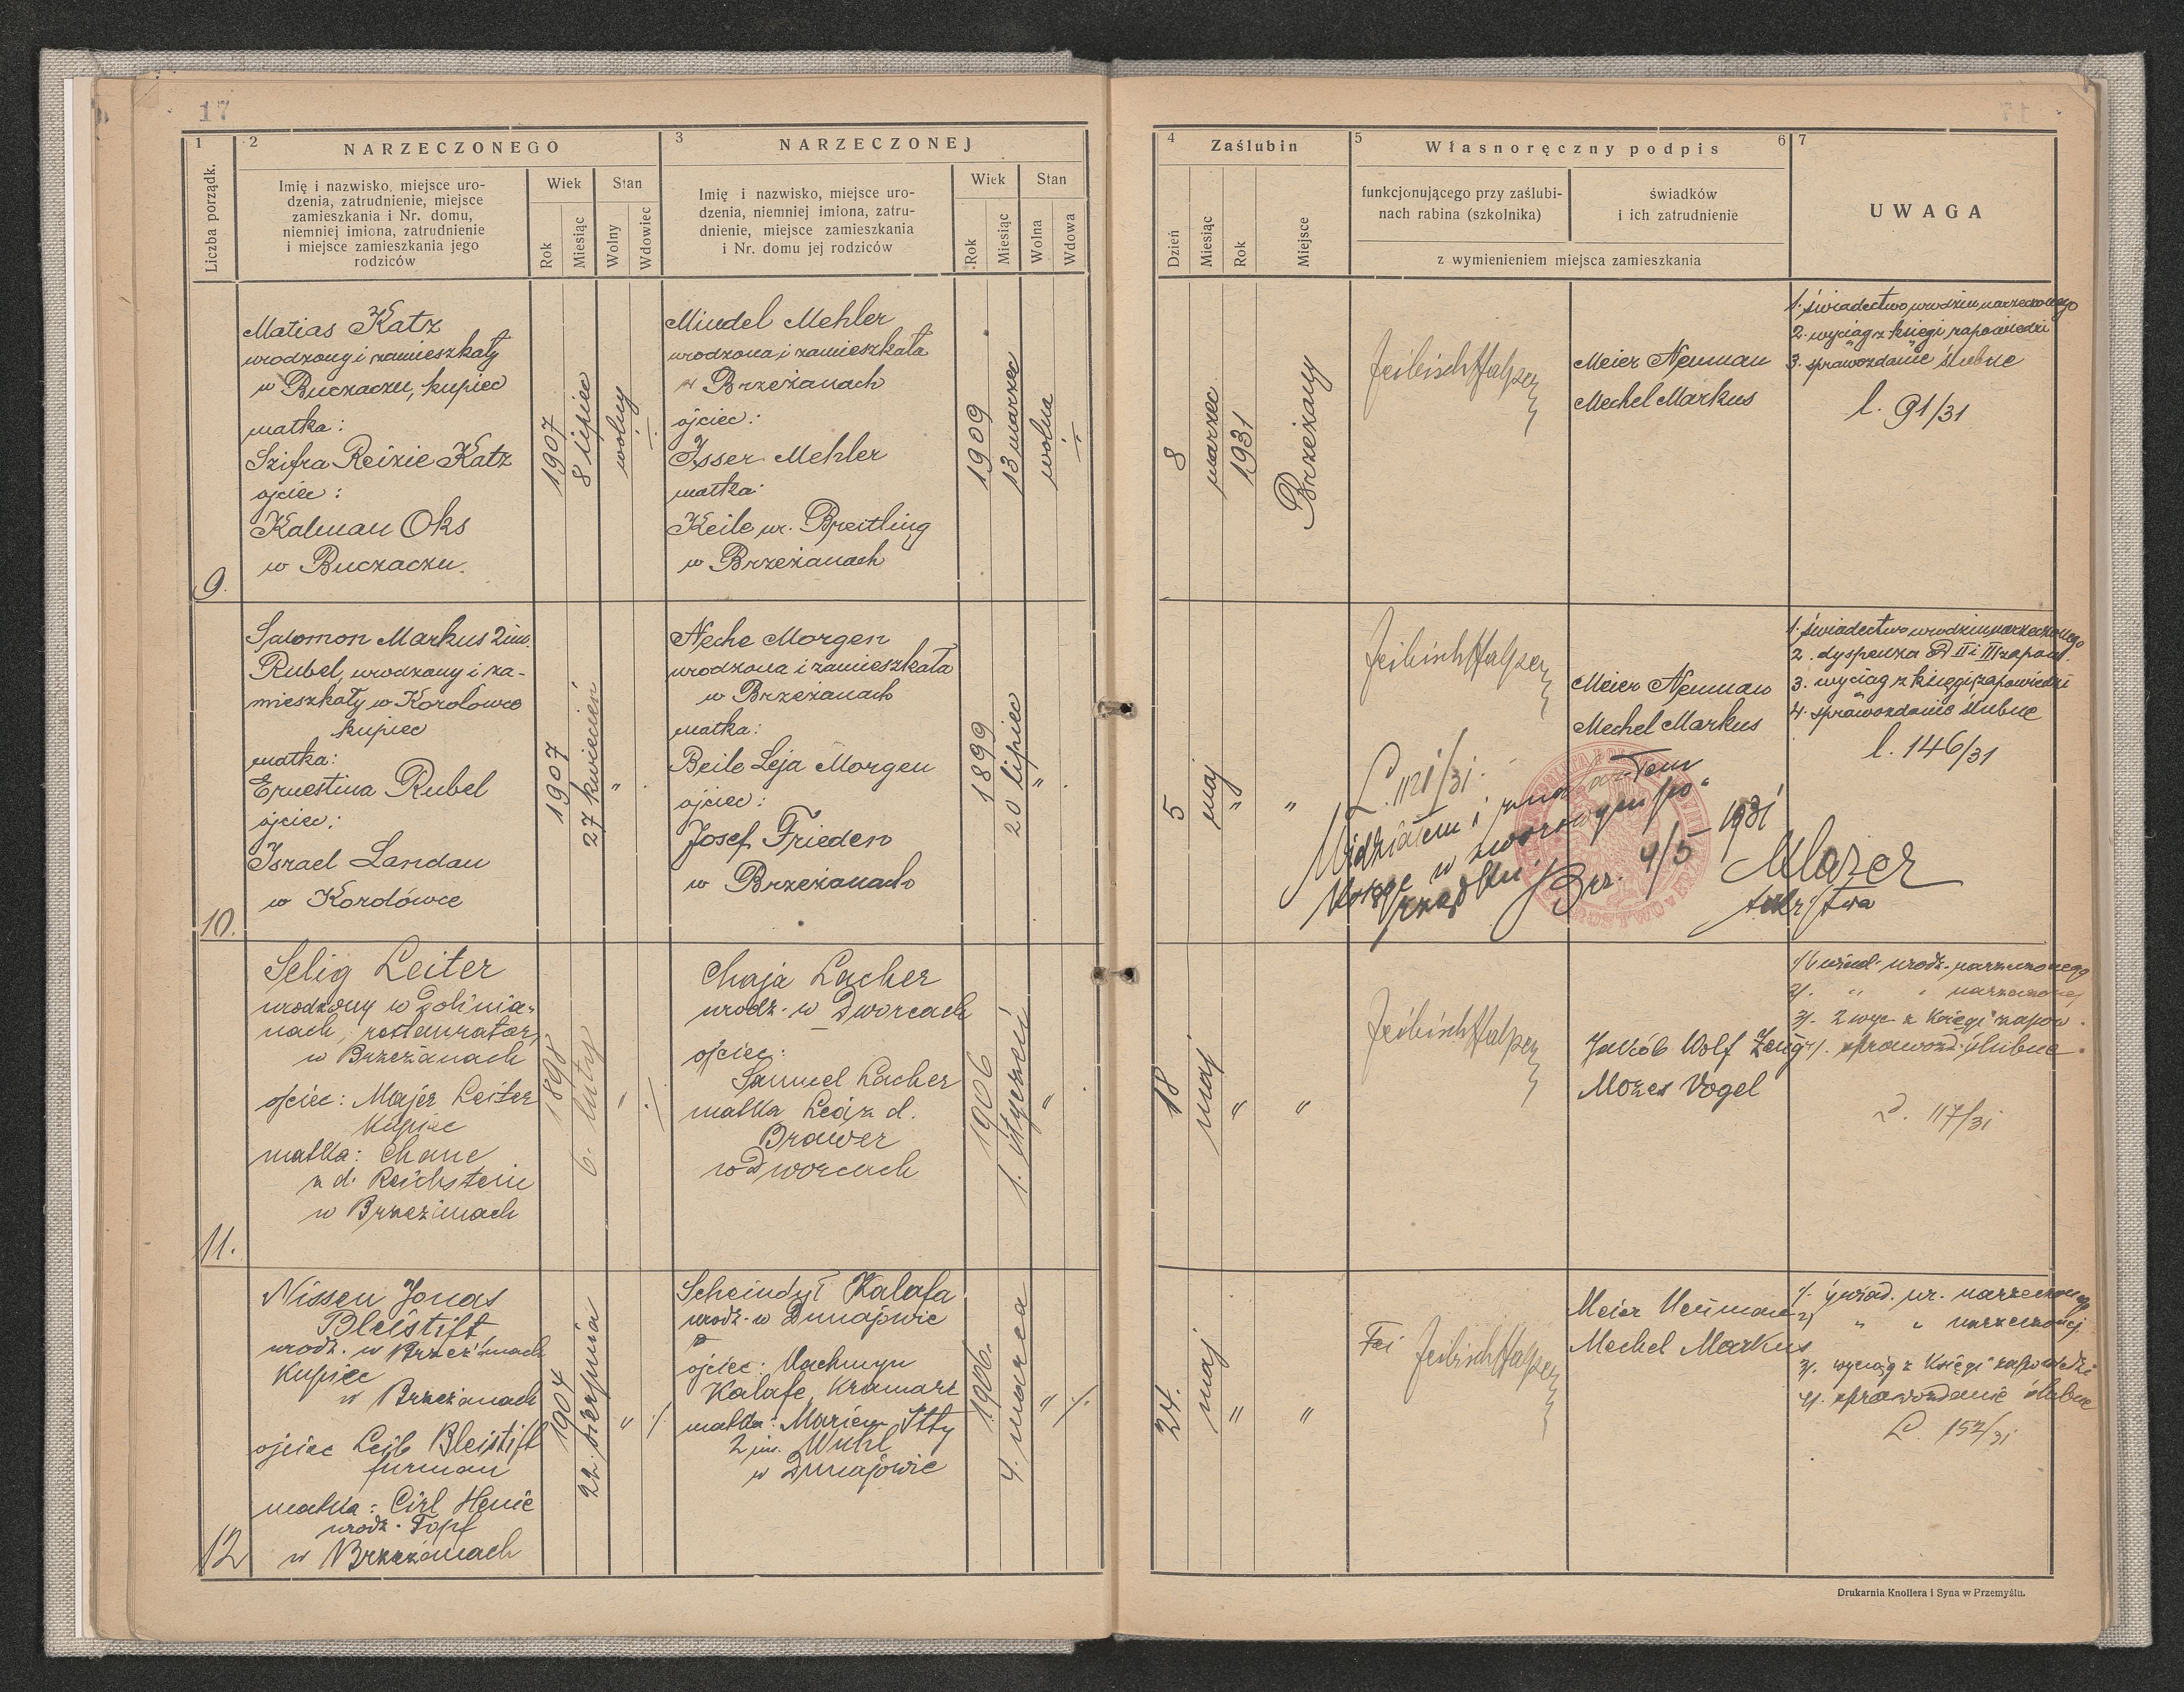 17
1
2
NARZECZONEGO
3
NARZECZONEJ
Liczba porządk.
Imię i nazwisko, miejsce uro-
dzenia, zatrudnienie, miejsce
zamieszkania i Nr. domu,
niemniej imiona, zatrudnienie
i miejsce zamieszkania jego
rodziców
Wiek
Stan
Rok
Miesiąc
Wolny
Wdowiec
Imię i nazwisko, miejsce uro-
dzenia, niemniej imiona, zatru-
dnienie, miejsce zamieszkania
i Nr. domu jej rodziców
Wiek
Stan
Rok
Miesiąc
Wolna
Wdowa
4
Zaślubin
5
Własnoręczny podpis
6
7
Dzień
Miesiąc
Rok
Miejsce
funkcjonującego przy zaślubi-
nach rabina (szkolnika)
świadków
i ich zatrudnienie
z wymienieniem miejsca zamieszkania
UWAGA
9.
Matias Katz
urodzony i zamieszkały
w Buczaczu, kupiec
matka:
Szifra Reizie Katz
ojciec:
Kalman Oks
w Buczaczu.
1907
8 lipiec
wolny
Mindel Mehler
urodzona i zamieszkała
w Brzeżanach
ojciec:
Isser Mehler
matka:
Keile ur. Breitling
w Brzeżanach
1909
13 marzec
wolna
8
marzec
1931
Brzeżany
Feibisch Halpern
Meier Neuman
Mechel Markus
1. świadectwo urodzin narzeczonego
2. wyciąg z księgi zapowiedzi
3. sprawozdanie ślubne
l. 91/31
10.
Salomon Markus 2im.
Rubel, urodzony i za-
mieszkały w Korolówce
kupiec
matka:
Ernestina Rubel
ojciec:
Israel Landau
w Korolówce
1907
27 kwiecień
"
Neche Morgen
urodzona i zamieszkała
w Brzeżanach
matka:
Beile Leja Morgen
ojciec:
Josef Frieden
w Brzeżanach
1899
20 lipiec
"
5
maj
"
"
Feibisch Halpern
Meier Neuman
Mechel Markus
1. świadectwo urodzin narzeczonego
2. dyspenza od II i III zapow.
3. wyciąg z księgi zapowiedzi
4. sprawozdanie ślubne
l. 146/31
L. 1121/31.
Widziałem i
w wzorowym po-
rządku
Brz. 4/5 1931
11.
Selig Leiter
urodzony w Dolinia-
nach, restaurator,
w Brzeżanach
ojciec: Majer Leiter
kupiec
matka: Chane
z d. Reichstein
w Brzeżanach
1898
6. luty
"
Chaja Lacher
urodz. w Dworcach
ojciec:
Samuel Lacher
matka Lea z d.
Brawer
w Dworcach
1906
1. styczeń
"
18
maj
"
"
Feibisch Halpern
Jakób Wolf Zeug
Mozes Vogel
1/ świad. urodz. narzeczonego
2/. " " narzeczonej
3/. 2 wyc z Księgi zapow.
4/. sprawozd. ślubne.
L. 117/31
12
Nissen Jonas
Bleistift
urodz. w Brzeżanach
Kupiec
w Brzeżanach
ojciec Leib Bleistift
furman
matka: Cirl Henie
urodz. Topf
w Brzeżanach
1904
22. sierpnia
"
Scheindyl Kalafa
urodz. w Dunajowie
ojciec: Nachmyn
Kalafe, Kramarz
matka: Mariem Itty
2 im. Wuhl
w Dunajowie
1906.
4. marca
"
24.
maj
"
"
Fei
Feibisch Halpern
Meier Neuman
Mechel Markus
1. świad. ur. narzeczonego
2/ " " narzeczonej
3/. wyciąg z Księgi zapowiedzi
4/. sprawozdanie ślubne
L. 152/31
Drukarnia Knollera i Syna w Przemyślu.